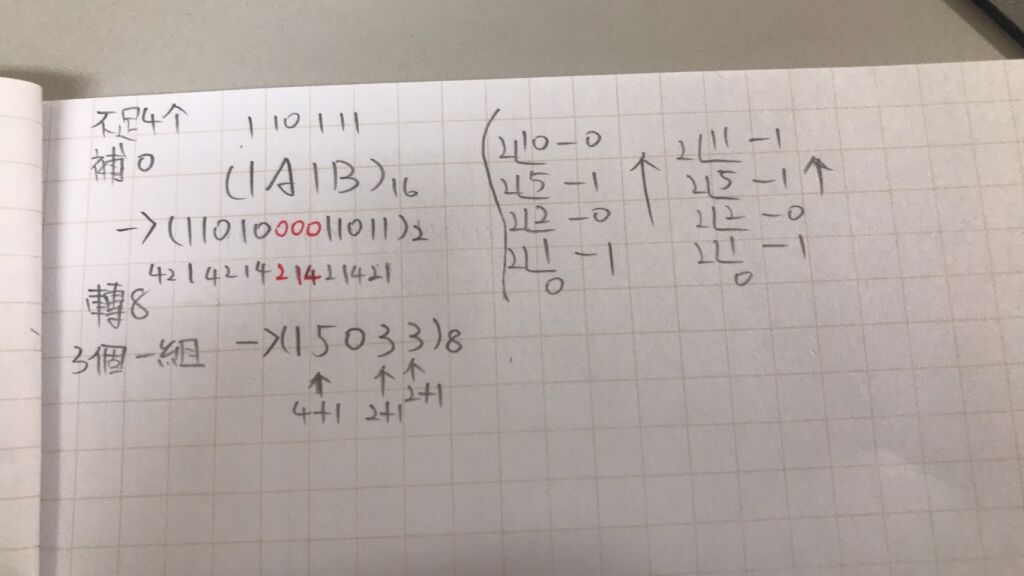 不足4个
補0
1 10 1 11
(1A1B)16
->(1101000011011)2
421421421421421
轉8
3個一組
->(15033)8
4+1 2+1 2+1
2 10 - 0
2 5 - 1
2 2 - 0
2 1 - 1
0
2 11 - 1
2 5 - 1
2 2 - 0
2 1 - 1
0